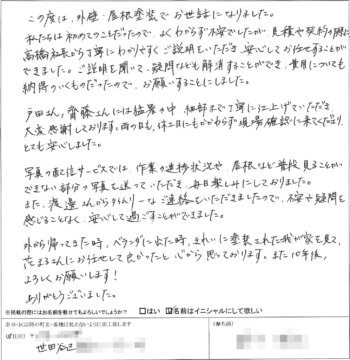 この度は、外壁・屋根塗装でお世話になりました。
私たちは初めてのことだったので、よくわからず不安でしたが、見積や契約の際に
高橋社長から丁寧にわかりやすくご説明をいただき、安心してお任せすることが
できました。ご説明を聞いて、疑問なども解消することができ、費用についても
納得のいくものだったので、お願いすることにしました。
戸田さん、齋藤さんには猛暑の中、細部まで丁寧に仕上げていただき
大変感謝しております。雨の日も、休工日にもかかわらず現場確認に来てくださり
とても安心しました。
写真の配信サービスでは、作業の進捗状況や、屋根など普段見ることが
できない部分の写真も送っていただき、毎日楽しみにしておりました。
また、渡邉さんからタイムリーなご連絡をいただきましたので、不安や疑問を
感じることなく、安心して過ごすことができました。
外から帰ってきた時、ベランダに出た時、きれいに塗装された我が家を見て、
花まるさんにお任せして良かったと心から思っております。また10年後、
よろしくお願いします!
ありがとうございました。
※掲載の際にはお名前を載せてもよろしいでしょうか? □はい ☑名前はイニシャルにして欲しい
※市・区以降の町名・番地は見えないように加工致します
ご住所 〒
世田谷区
ご署名